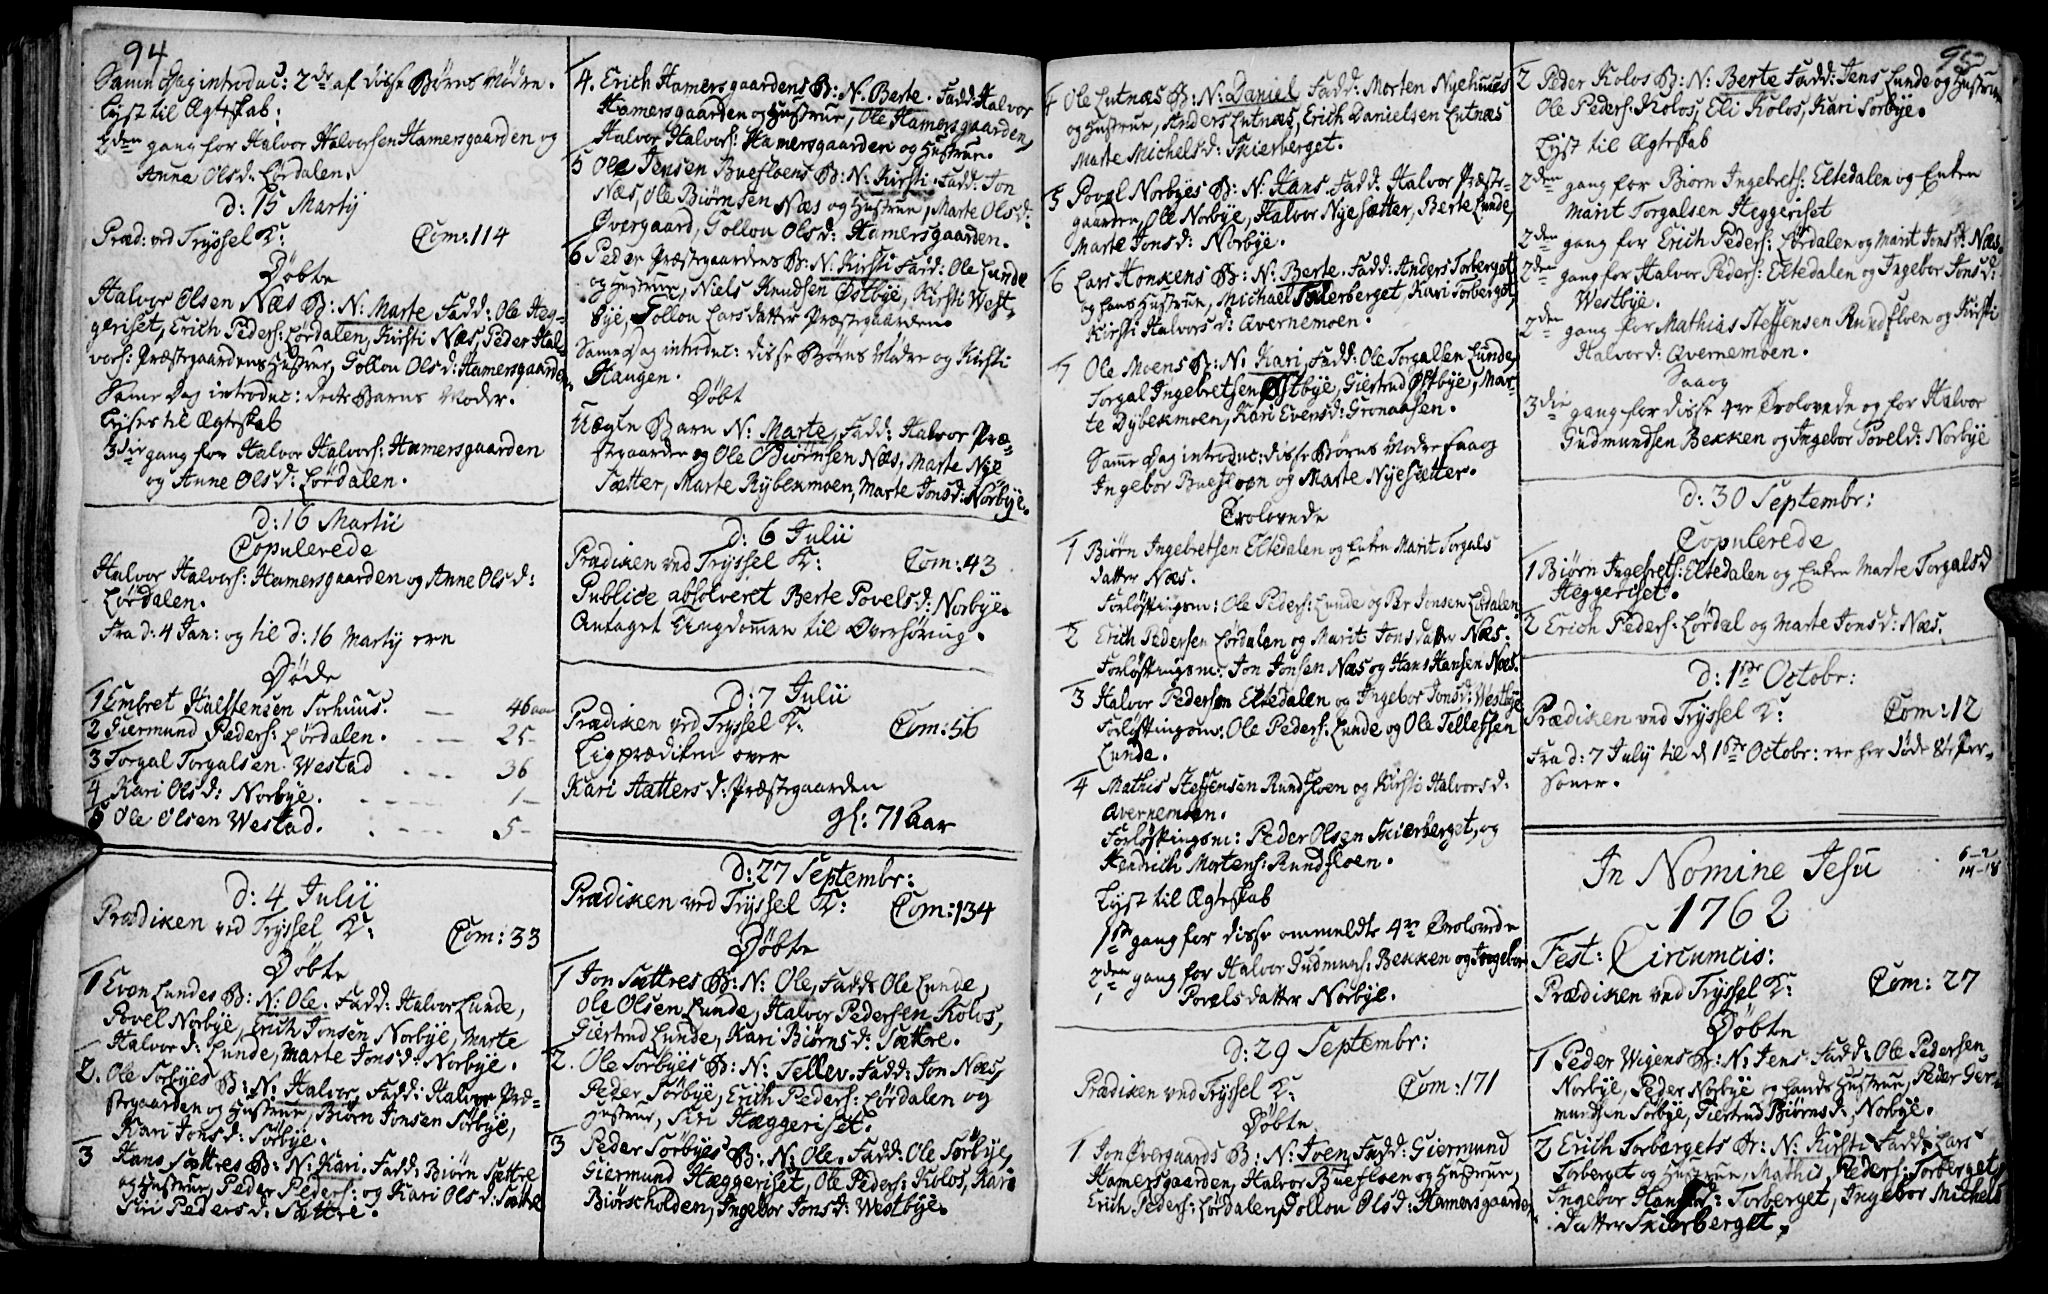 94
Samme Dag introduc: 2de af disse Børns Mødre.
Lyst til Ægteskab:
2den gang for Halvor Halvorsen Hamersgaarden og
Anna Olsd: Lørdalen.
d: 15 Martij
Præd: ved Tryssel K: Com: 114
Døbte
Halvor Olsen Næs B: N: Marte Fadd: Ole Heg-
geriset, Erich Peders: Lørdalen, Kirsti Næs, Peder Hal-
vors: Præstgaardens Hustrue, Gollou Olsd: Hamersgaarden.
Samme Dag introduc: dette Barns Moder.
Lyses til Ægteskab
3die gang for Halvor Halvors: Hamersgaarden
og Anne Olsd: Lørdalen.
D: 16 Martii
Copulerede
Halvor Halvors: Hamersgaarden og Anne Olsd:
Lørdalen.
Fra d: 4 Jan: og til d: 16 Martij ere
Døde
1 Embret Halstensen Sorhuus. — 46 aar
2 Giermund Peders: Lørdalen. — 25 -
3 Torgal Torgalsen Westad — 36
4 Kari Olsd: Norbye. — 1 -
5 Ole Olsen Westad. — 5 -
D: 4 Julii
Prædiken ved Tryssel K: Com: 33
Døbte
1 Even Lundes B: N: Ole. Fadd: Halvor Lunde,
Povel Norbye, Erich Jonsen Norbye, Marte
Halvord: Lunde, Marte Jonsd: Norbye.
2. Ole Sorbyes B: N: Halvor, Fadd: Halvor Præ-
stegaarden og Hustrue, Biørn Jonsen Sørbye,
Kari Jonsd: Sørbye.
3 Hans Sættres B: N: Kari. Fadd: Biørn Sættre
og Hustrue, Peder Peders: og Kari Olsd: Sættre
Siri Pedersd: Sættre.
4. Erich Hamersgaardens B: N: Berte. Fadd: Halvor
Hamersgaarden og Hustrue, Ole Hamersgaarden,
Halvor Halvors: Hamersgaarden og Hustrue.
5 Ole Jensen Buefloens B: N: Kirsti. Fadd: Jon
Næs, Ole Biørnsen Næs og Hustrue, Marte Olsd:
Øvergaard, Gollou Olsd: Hamersgaarden.
6 Peder Præstegaardens B: N: Kirsti Fadd: Ole Lunde
og Hustrue, Niels Knudsen Østbye, Kirsti West-
bye, Gollou Larsdatter Præstegaarden.
Samme Dag introduc: disse Børns Mødre og Kirsti
Haugen.
Døbt
Uægte Barn N: Marte, Fadd: Halvor Præ-
stegaarden og Ole Biørnsen Næs, Marte Nye
Sætter, Marte Rybekmoen, Marte Jonsd: Norbye.
D: 6 Julii
Prædiken ved Tryssel K: Com: 43
Publice absolveret Berte Povelsd: Norbye.
Antaget Ungdommen til Overhøring.
D: 7 Julii
Prædiken ved Tryssel K: Com: 56
Ligprædiken over
Kari Aattersd: Præstgaarden
gl: 71 Aar
D: 27 Septembr:
Prædiken ved Tryssel K: Com: 134
Døbte
1 Jon Sættres B: N: Ole, Fadd: Ole Lunde,
Ole Olsen Lunde, Halvor Pedersen Kolos,
Giertrud Lunde, Kari Biørnsd: Sættre.
2. Ole Sorbyes B: N: Tellev. Fadd: Jon Næs,
Peder Sørbye, Erich Peders: Lørdalen og
Hustrue, Siri Hæggeriset.
3 Peder Sørbyes B: N: Ole. Fadd: Ole Sørbye,
Giermund Hæggeriset, Ole Peders: Kolos, Kari
Biørscholden, Ingebor Jonsd: Westbye.
4 Ole Lutnæs B: N: Daniel Fadd: Morten Nyehuus
og Hustrue, Anders Lutnæs, Erich Danielsen Lutnæs
Marte Michelsd: Skierberget.
5 Povel Norbyes B: N: Hans. Fadd: Halvor Præste-
gaarden, Ole Norbye, Halvor Nyesætter, Berte Lunde,
Marte Jonsd: Norbye.
6 Lars Honkens B: N: Berte. Fadd: Anders Torberget
og hans Hustrue, Michael Skierberget, Kari Torberget,
Kirsti Halvorsd: Avernemoen.
7 Ole Moens B: N: Kari, Fadd: Ole Torgalsen Lunde,
Torgal Ingebretsen Østbye, Giertrud Østbye, Mar-
te Dybekmoen, Kari Evensd: Gronaasen.
Samme Dag introduc: disse Børns Mødre saa og
Ingebor Buefloen og Marte Nyesætter.
Trolovede
1 Biørn Ingebretsen Eltedalen og Enken Marit Torgals
datter Næs.
Forløftningsm: Ole Peders: Lunde og Per Jonsen Lørdalen
2 Erich Pedersen Lørdalen og Marit Jonsdatter Næs.
Forløftningsm: Jon Jonsen Næs og Hans Hansen Næs.
3 Halvor Pedersen Eltedalen og Ingebor Jonsd: Westbye
Forløftningsm: Ole Peders: Lunde og Ole Tellefsen
Lunde.
4 Mathis Steffensen Rundfloen og Kirsti Halvorsd:
Avernemoen.
Forløftningsm: Peder Olsen Skierberget, og
Hendrich Mortens: Rundfloen.
Lyst til Ægteskab
1ste gang for disse ommeldte 4re Trolovede
2den gang for Halvor Gudmuns: Bekken og Ingebor
Povelsdatter Norbye.
D: 29 Septembr:
Prædiken ved Tryssel K: Com: 171
Døbte
1 Jon Øvergaards B: N: Joen, Fadd: Giermund
Hamersgaarden, Halvor Buefloen og Hustrue,
Erich Peders: Lørdalen, Gollou Olsd: Hamersgaarden.
95
2 Peder Kolos B: N: Berte Fadd: Jens Lunde og Hustrue
Ole Peders: Kolos, Eli Kolos, Kari Sorbye.
Lyst til Ægteskab
2den gang for Biørn Ingebrets: Eltedalen og Enken
Marit Torgalsen Heggeriset
2den gang for Erich Peders: Lørdalen og Marit Jonsd: Næs.
2den gang for Halvor Peders: Eltedalen og Ingebor Jonsd:
Westbye.
2den gang for Mathias Steffensen Rundfloen og Kirsti
Halvord: Avernemoen.
Saa og
3die gang for disse 4re Trolovede og for Halvor
Gudmundsen Bekken og Ingebor Poveld: Norbye
D: 30 Septembr:
Copulerede
1 Biørn Ingebrets: Eltedalen og Enken Marte Torgalsd
Heggeriset.
2 Erich Peders: Lørdal og Marte Jonsd: Næs.
D: 1ste Octobr:
Prædiken ved Tryssel K: Com: 12
Fra d: 7 July til d 1ste Octobr: ere her døde 8te Per-
soner.
In Nomine Jesu
1762
6-2
14-18
Fest: Circumcis:
Prædiken ved Tryssel K: Com: 27
Døbte
1 Peder Wigens B: N: Jens Fadd: Ole Pedersen
Norbye, Peder Norbye og hands Hustrue, Peder Ger-
mundsen Sørbye, Giertrud Biørnsd: Norbye.
2 Erich Torbergets B: N: Kirsti Fadd: Lars
Torberget og Hustrue, Mathis Peders: Torberget,
Ingebor Hansd: Torberget, Ingebor Michels
datter Skierberget.